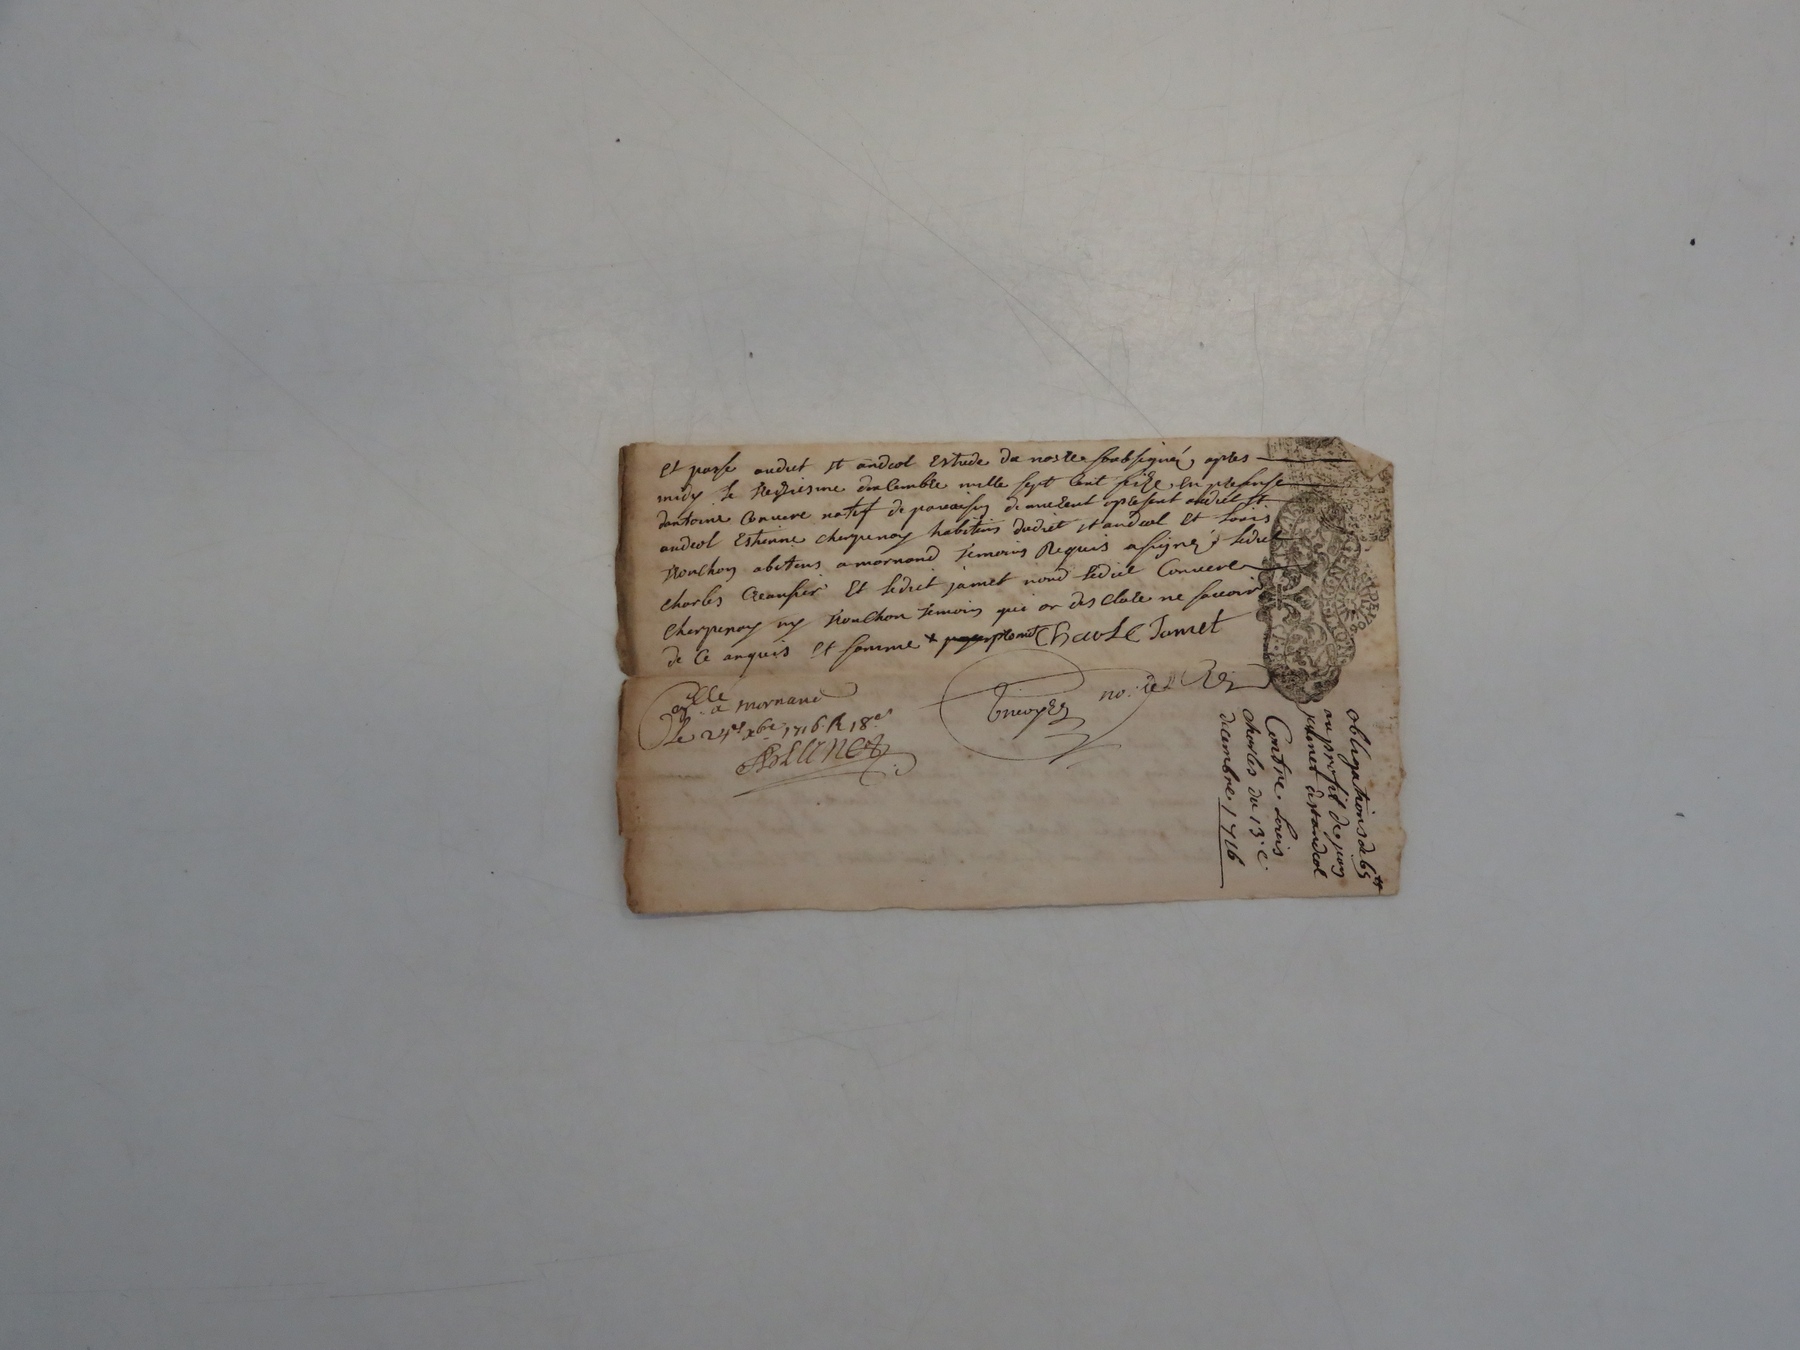 et passé audict st andeol Estude du nosre soubsigné, apres
midy le tresiesme decembre mille sept cent seize, en presance
dantoine Convere natif de paroisse de apresent audict st
andeol Estienne cherpenay habitans dudict st andeol et Louis
abitans a mornand temoins Requis a signé ledict
charles et ledict jamet nond ledict Convere
cherpenay ny temoins qui or desclaré ne savoir
de ce anquis et somme Charle Jamet
no: Re
a mornand
Le 24e xbre 1716 R 18s
obligations de 65 tt
au profit de
jamet à st andeol
Contre Louis
charles du 13:e
decembre 1716